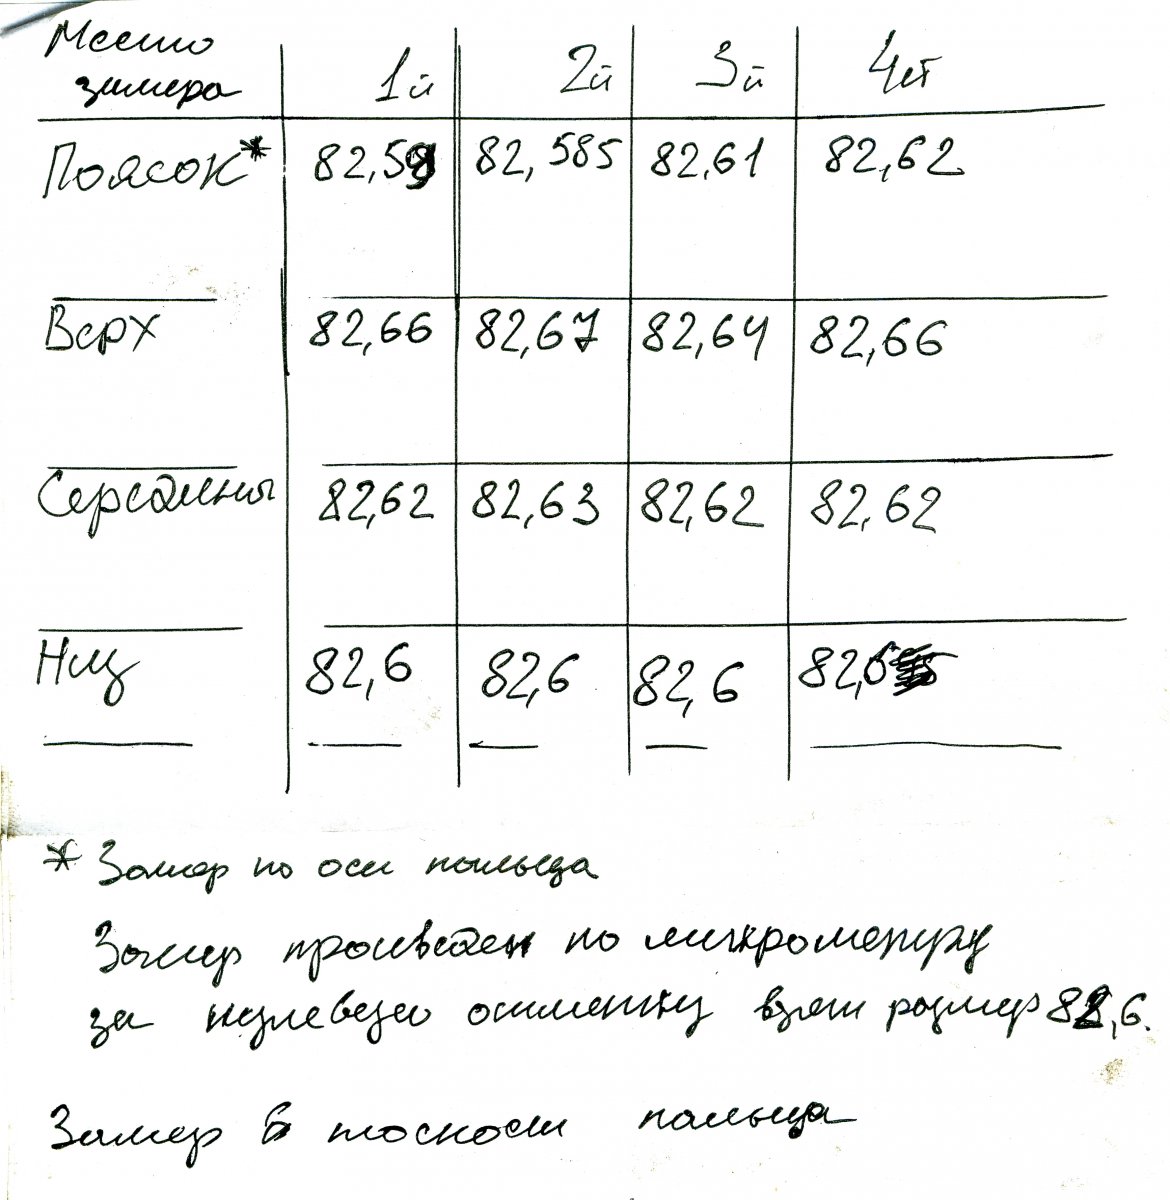 Место
замера 1й 2й 3й 4ый
Поясок* 82,59 82,585 82,61 82,62
Верх 82,66 82,67 82,64 82,66
Середины 82,62 82,63 82,62 82,62
Низ 82,6 82,6 82,6 82,6
* Замер по оси пальца
Замер произведен по микрометру
за нулевую отметку взят размер 82,6.
Замер в плоскости пальца